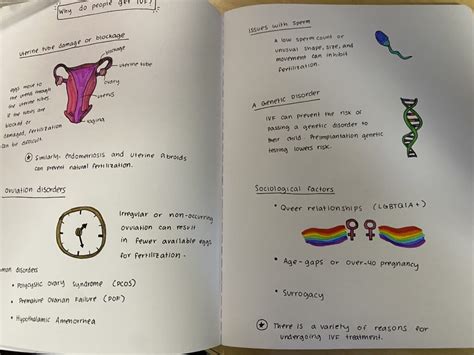 Why do people get IVF?
Uterine tube damage or blockage
blockage
uterine tube
ovary
uterus
vagina
eggs move to
the uterus through
the uterine tubes
if the tubes are
blocked or
damaged, fertilization
can be difficult.
Similarly endometriosis and uterine fibroids
can prevent natural fertilization.
Ovulation disorders
Irregular or non-occurring
ovulation can result
in fewer available eggs
for fertilization.
mon disorders
• Polycystic Ovary Syndrome (PCOS)
• Premature Ovarian Failure (POF)
• Hypothalamic Amenorrhea
Issues with sperm
A low sperm count or
unusual shape, size, and
movement can inhibit
fertilization.
A Genetic Disorder
IVF can prevent the risk of
passing a genetic disorder to
their child. Preimplantation genetic
testing lowers risk.
Sociological factors
• Queer relationships (LGBTQIA+)
• Age-gaps or over-40 pregnancy
• Surrogacy
There is a variety of reasons for
undergoing IVF treatment.